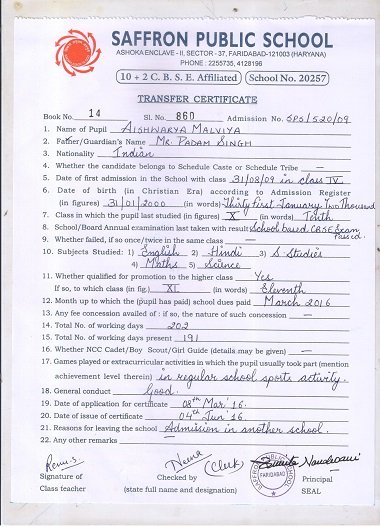 SAFFRON PUBLIC SCHOOL
ASHOKA ENCLAVE - II, SECTOR - 37, FARIDABAD-121003 (HARYANA)
PHONE : 2255735, 4128196
10 + 2 C. B. S. E. Affiliated School No. 20257
TRANSFER CERTIFICATE
Book No. 14 Sl. No. 860 Admission No. SPS/520/09
1. Name of Pupil Aishwarya Malviya
2. Father/Guardian's Name Mr. Padam Singh
3. Nationality Indian
4. Whether the candidate belongs to Schedule Caste or Schedule Tribe —
5. Date of first admission in the School with class 31/08/09 in class IV
6. Date of birth (in Christian Era) according to Admission Register
(in figures) 31/01/2000 (in words) Thirty First January, Two Thousand
7. Class in which the pupil last studied (in figures) X (in words) Tenth
8. School/Board Annual examination last taken with result School based CBSE Exam Passed
9. Whether failed, if so once/twice in the same class —
10. Subjects Studied: 1) English 2) Hindi 3) S. Studies
4) Maths 5) Science
11. Whether qualified for promotion to the higher class Yes
If so, to which class (in fig.) XI (in words) Eleventh
12. Month up to which the (pupil has paid) school dues paid March 2016
13. Any fee concession availed of : if so, the nature of such concession —
14. Total No. of working days 202
15. Total No. of working days present 191
16. Whether NCC Cadet/Boy Scout/Girl Guide (details may be given) —
17. Games played or extracurricular activities in which the pupil usually took part (mention
achievement level therein) in regular school sports activity.
18. General conduct Good.
19. Date of application for certificate 08th Mar' 16
20. Date of issue of certificate 04th Jun' 16
21. Reasons for leaving the school Admission in another school.
22. Any other remarks —
(Clerk)
Signature of Checked by Principal
Class teacher (state full name and designation) SEAL
FARIDABAD